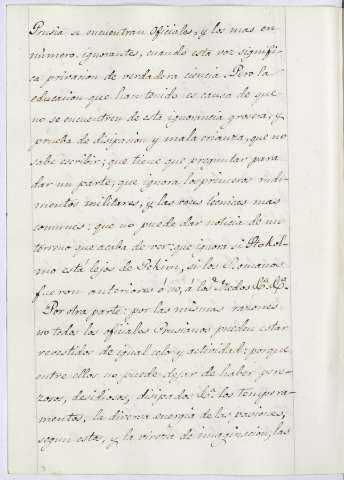 Prusia se encuentran Oficiales, y los mas en
número, ignorantes, cuando esta voz signifi-
ca privacion de verdadera ciencia. Pero la
educacion que han tenido es causa de que
no se encuentren de esta ignorancia grosera, y
prueba de disipacion y mala crianza, que no
sabe escribir; que tiene que preguntar para
dar un parte; que ignora los primeros rudi-
mentos militares, y las voces tecnicas mas
comunes; que no puede dar noticia de un
terreno que acaba de ver; que ignora si Stokol-
mo está lejos de Pekin, si los Romanos
fueron anteriores ó no, á los Medos &c. &c.
Por otra parte: por las mismas razones
no todos los oficiales Prusianos pueden estar
revestidos de igual celo, y actividad; porque
entre ellos no puede dejar de haber pere-
zosos, desidiosos, disipados &c. los tempera-
mentos, la diversa energia de las pasiones,
segun estos, y la viveza de imaginacion, las